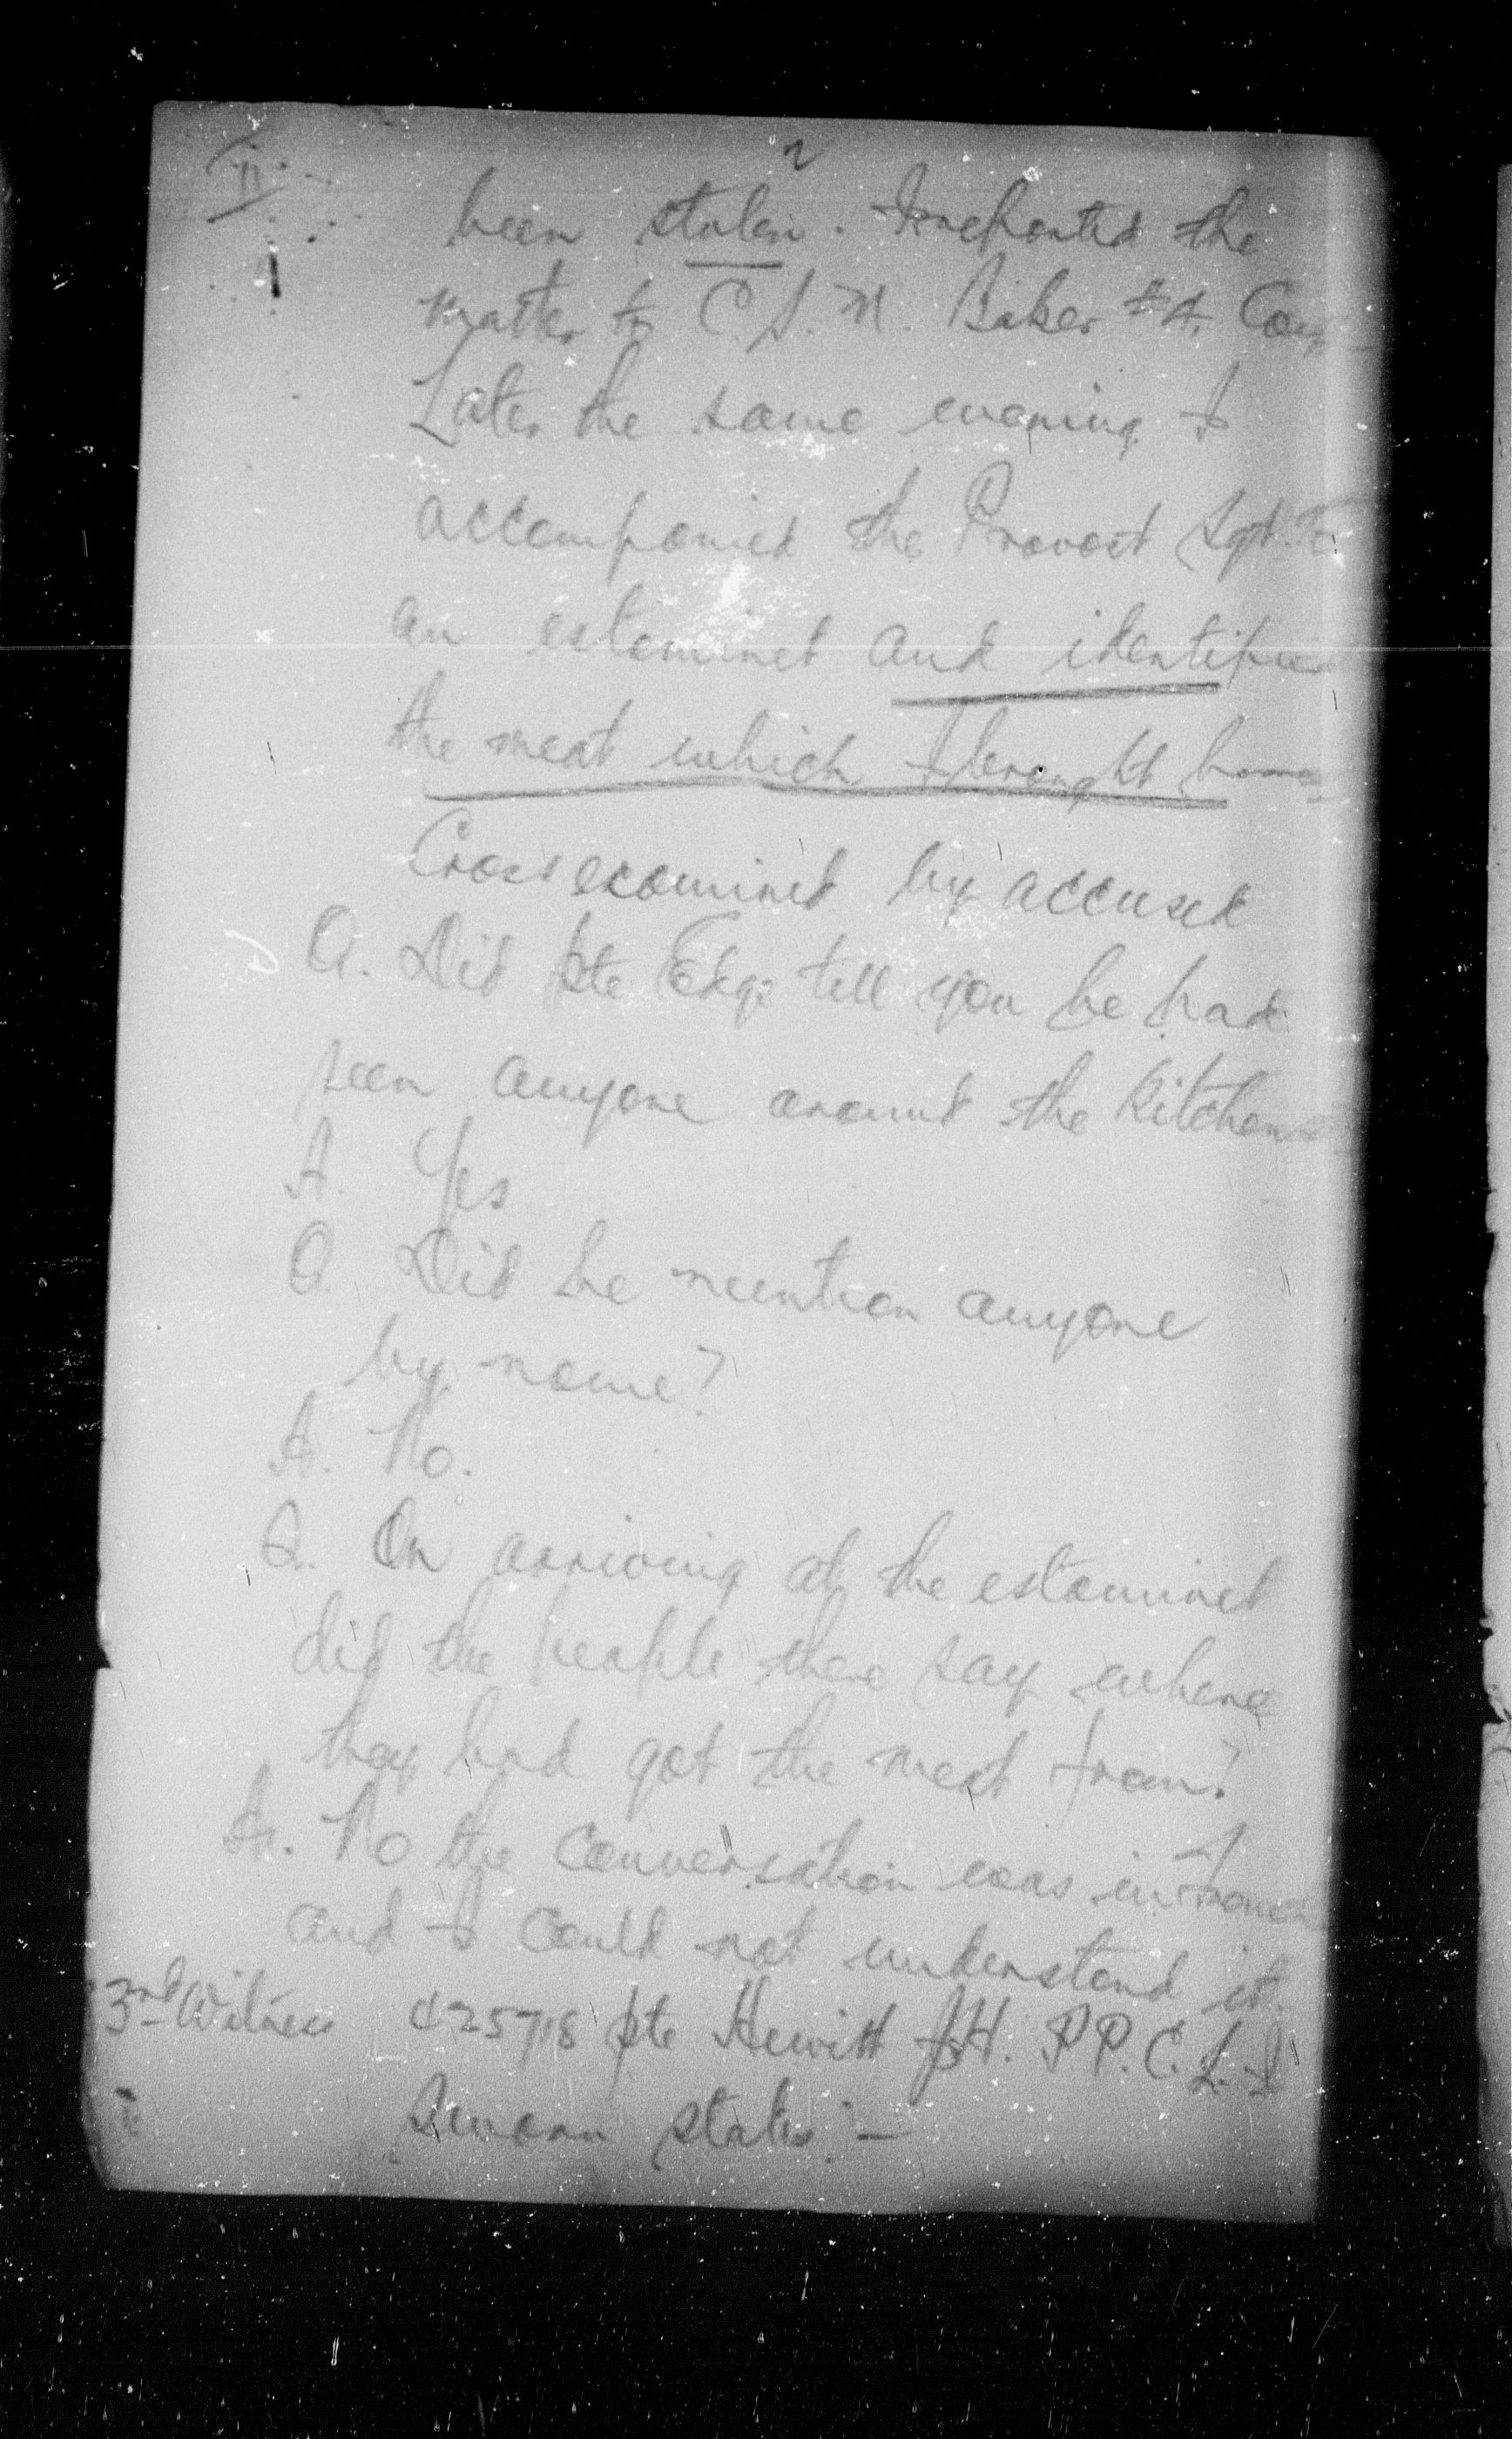 2
been stolen. I reported the
matter to C.S.M. Baker #4. Coy
Later the same evening I
accompanied the Provost Sgt. To
an estaminet and identified
the meat which I brought home
Cross examined by accused
Q. Did Pte Edge tell you he had
seen anyone around the kitchen
A. Yes
Q. Did he mention anyone
by name?
A. No.
Q. On arriving at the estaminet
did the people there say where
they had got the meat from?
A. No the conversation was in French
and I could not understand it.
3rd Witness 425718 Pte Hewitt J.H. P.P.C.L.I
Sworn states:—